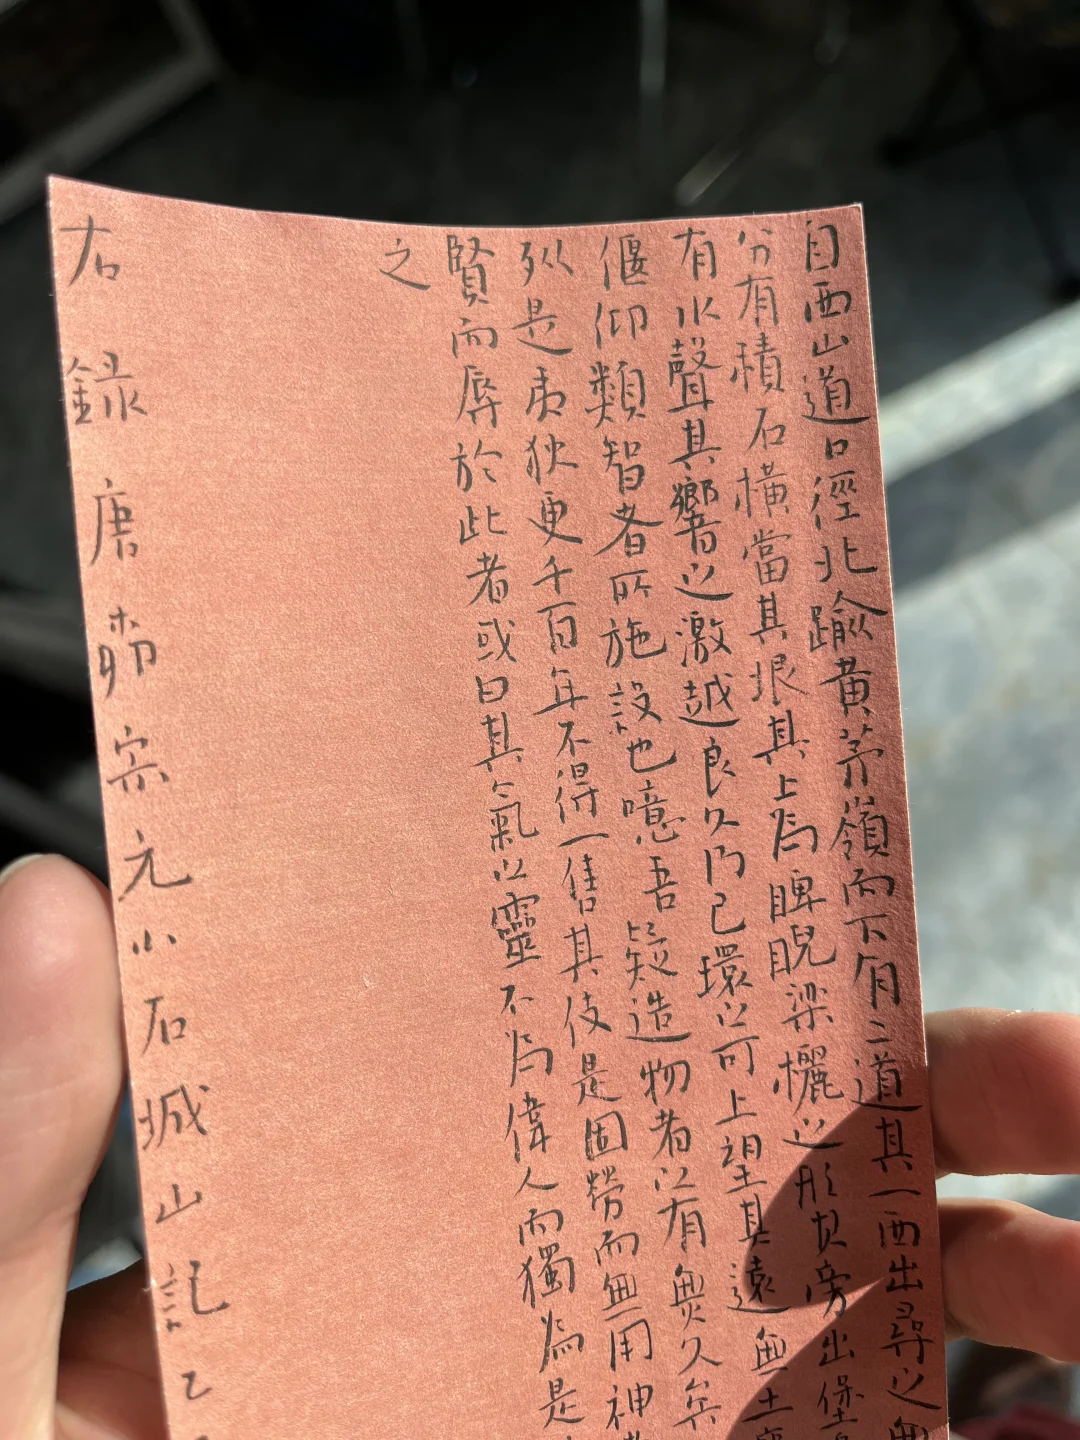 自西山道口徑北踰黃茅嶺而下有二道其一西出尋之無
分有積石橫當其垠其上為睥睨梁欐之形其旁出堡
有水聲其響之激越良久乃已環之可上望其遠無土
偃仰類智者所施設也噫吾疑造物者之有無久矣
列是夷狄更千百年不得一售其伎是固勞而無用神
賢而辱於此者或曰其氣之靈不為偉人而獨為是
之
右錄唐柳宗元小石城山記乙